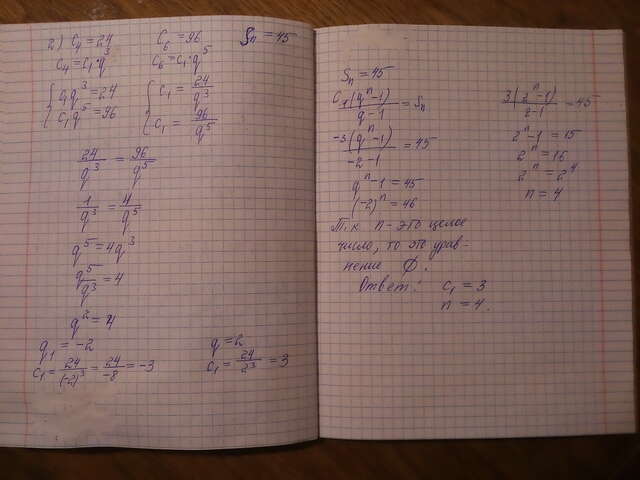 2) C₄ = 24   C₆ = 96   Sn = 45
C₄ = C₁·q³   C₆ = C₁·q⁵
{ C₁q³ = 24   { C₁ = 24/q³
{ C₁q⁵ = 96   { C₁ = 96/q⁵
24/q³ = 96/q⁵
1/q³ = 4/q⁵
q⁵ = 4q³
q⁵/q³ = 4
q² = 4
q₁ = -2   q = 2
C₁ = 24/(-2)³ = 24/-8 = -3   C₁ = 24/2³ = 3
Sn = 45
C₁(qⁿ-1)/q-1 = Sn
-3(qⁿ-1)/-2-1 = 45
qⁿ-1 = 45
(-2)ⁿ = 46
Т.к n - это целое
число, то это урав-
нение ∅.
3(2ⁿ-1)/2-1 = 45
2ⁿ-1 = 15
2ⁿ = 16
2ⁿ = 2⁴
n = 4
Ответ: C₁ = 3
n = 4.